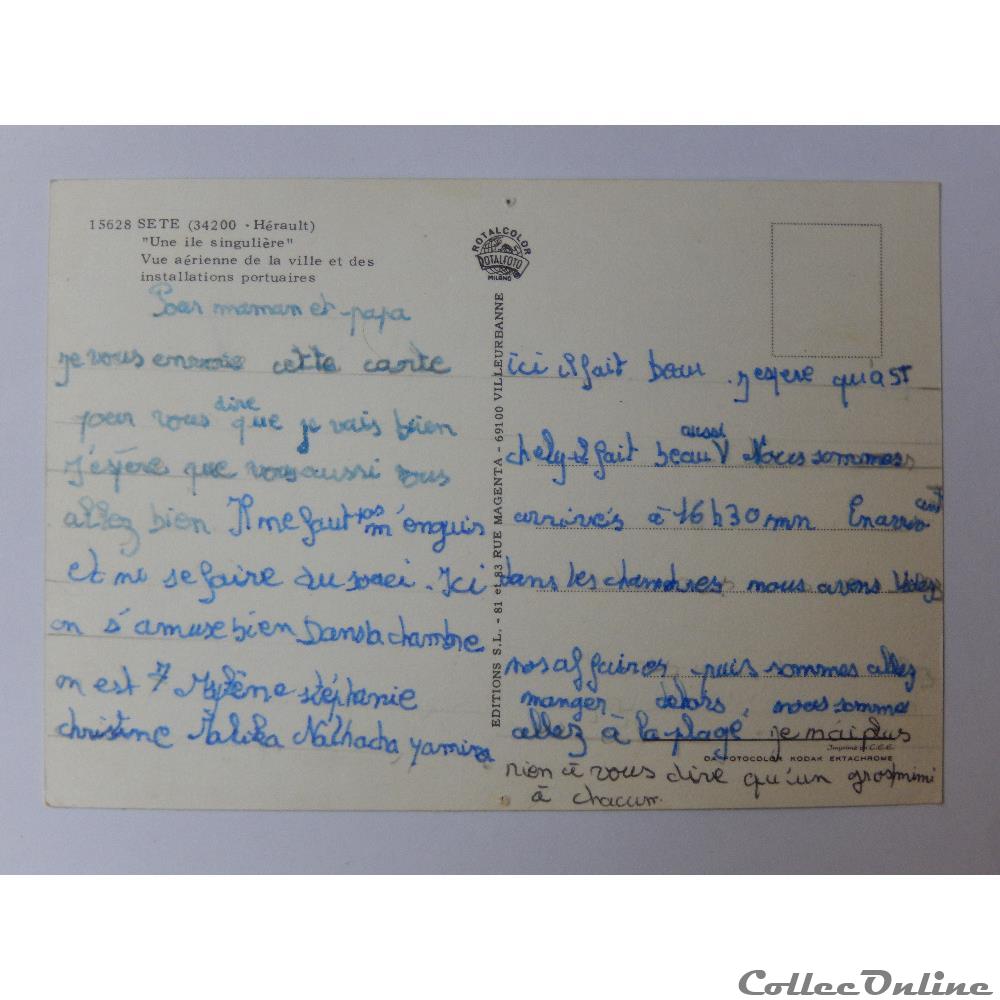 15628 SETE (34200 - Hérault)
"Une ile singulière"
Vue aérienne de la ville et des
installations portuaires
Pour maman et papa
je vous envoie cette carte
pour vous dire que je vais bien
J'espere que vous aussi vous
allez bien Il me faut pas m'enquis
et ni se faire du souci. Ici
on s'amuse bien Dans la chambre
on est 7 Mylène stéphanie
christine Malika Nathacha yamina
EDITIONS S.L. - 81 et 83 RUE MAGENTA - 69100 VILLEURBANNE
ROTALCOLOR
ROTALFOTO
MILANO
ici il fait beau. j'espere qu'a ST
chely il fait beau aussi Nous sommes
arrivés à 16h30mn En arrivant
dans les chambres nous avons
nos affaires, puis sommes allez
manger dehors, nous somme
allez à la plage je n'ai plus
Imprimé in C.E.E.
DA FOTOCOLOR KODAK EKTACHROME
rien à vous dire qu'un gros mimi
à chacun.
CollecOnline